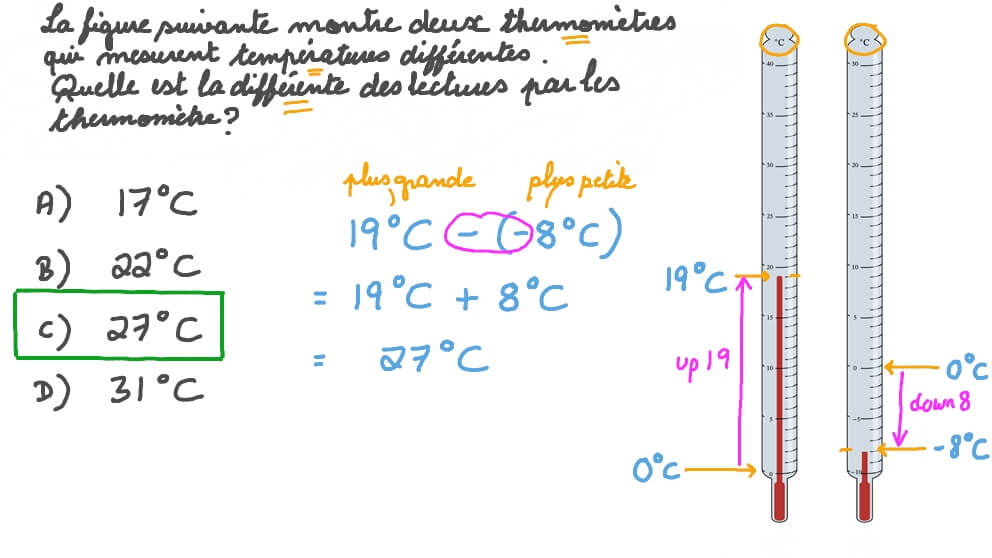 La figure suivante montre deux thermomètres
qui mesurent températures différentes.
Quelle est la différente des lectures par les
thermomètre?
A) 17°C
B) 22°C
C) 27°C
D) 31°C
plus grande plus petite
19°C - (-8°C)
= 19°C + 8°C
= 27°C
19°C
up 19
0°C
°C
40
35
30
25
20
15
10
5
0
°C
30
25
20
15
10
5
0
-5
-10
0°C
down 8
-8°C